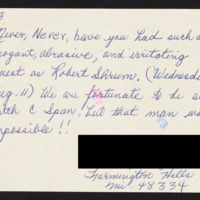 Never, Never, have you had such a
rogant, abrasive, and irritating
uest as Robert Shrum. (Wednesda
ug. 11) We are fortunate to be a
atch C Span! but that man wa
mpossible!!
Farmington Hills
mi 48334